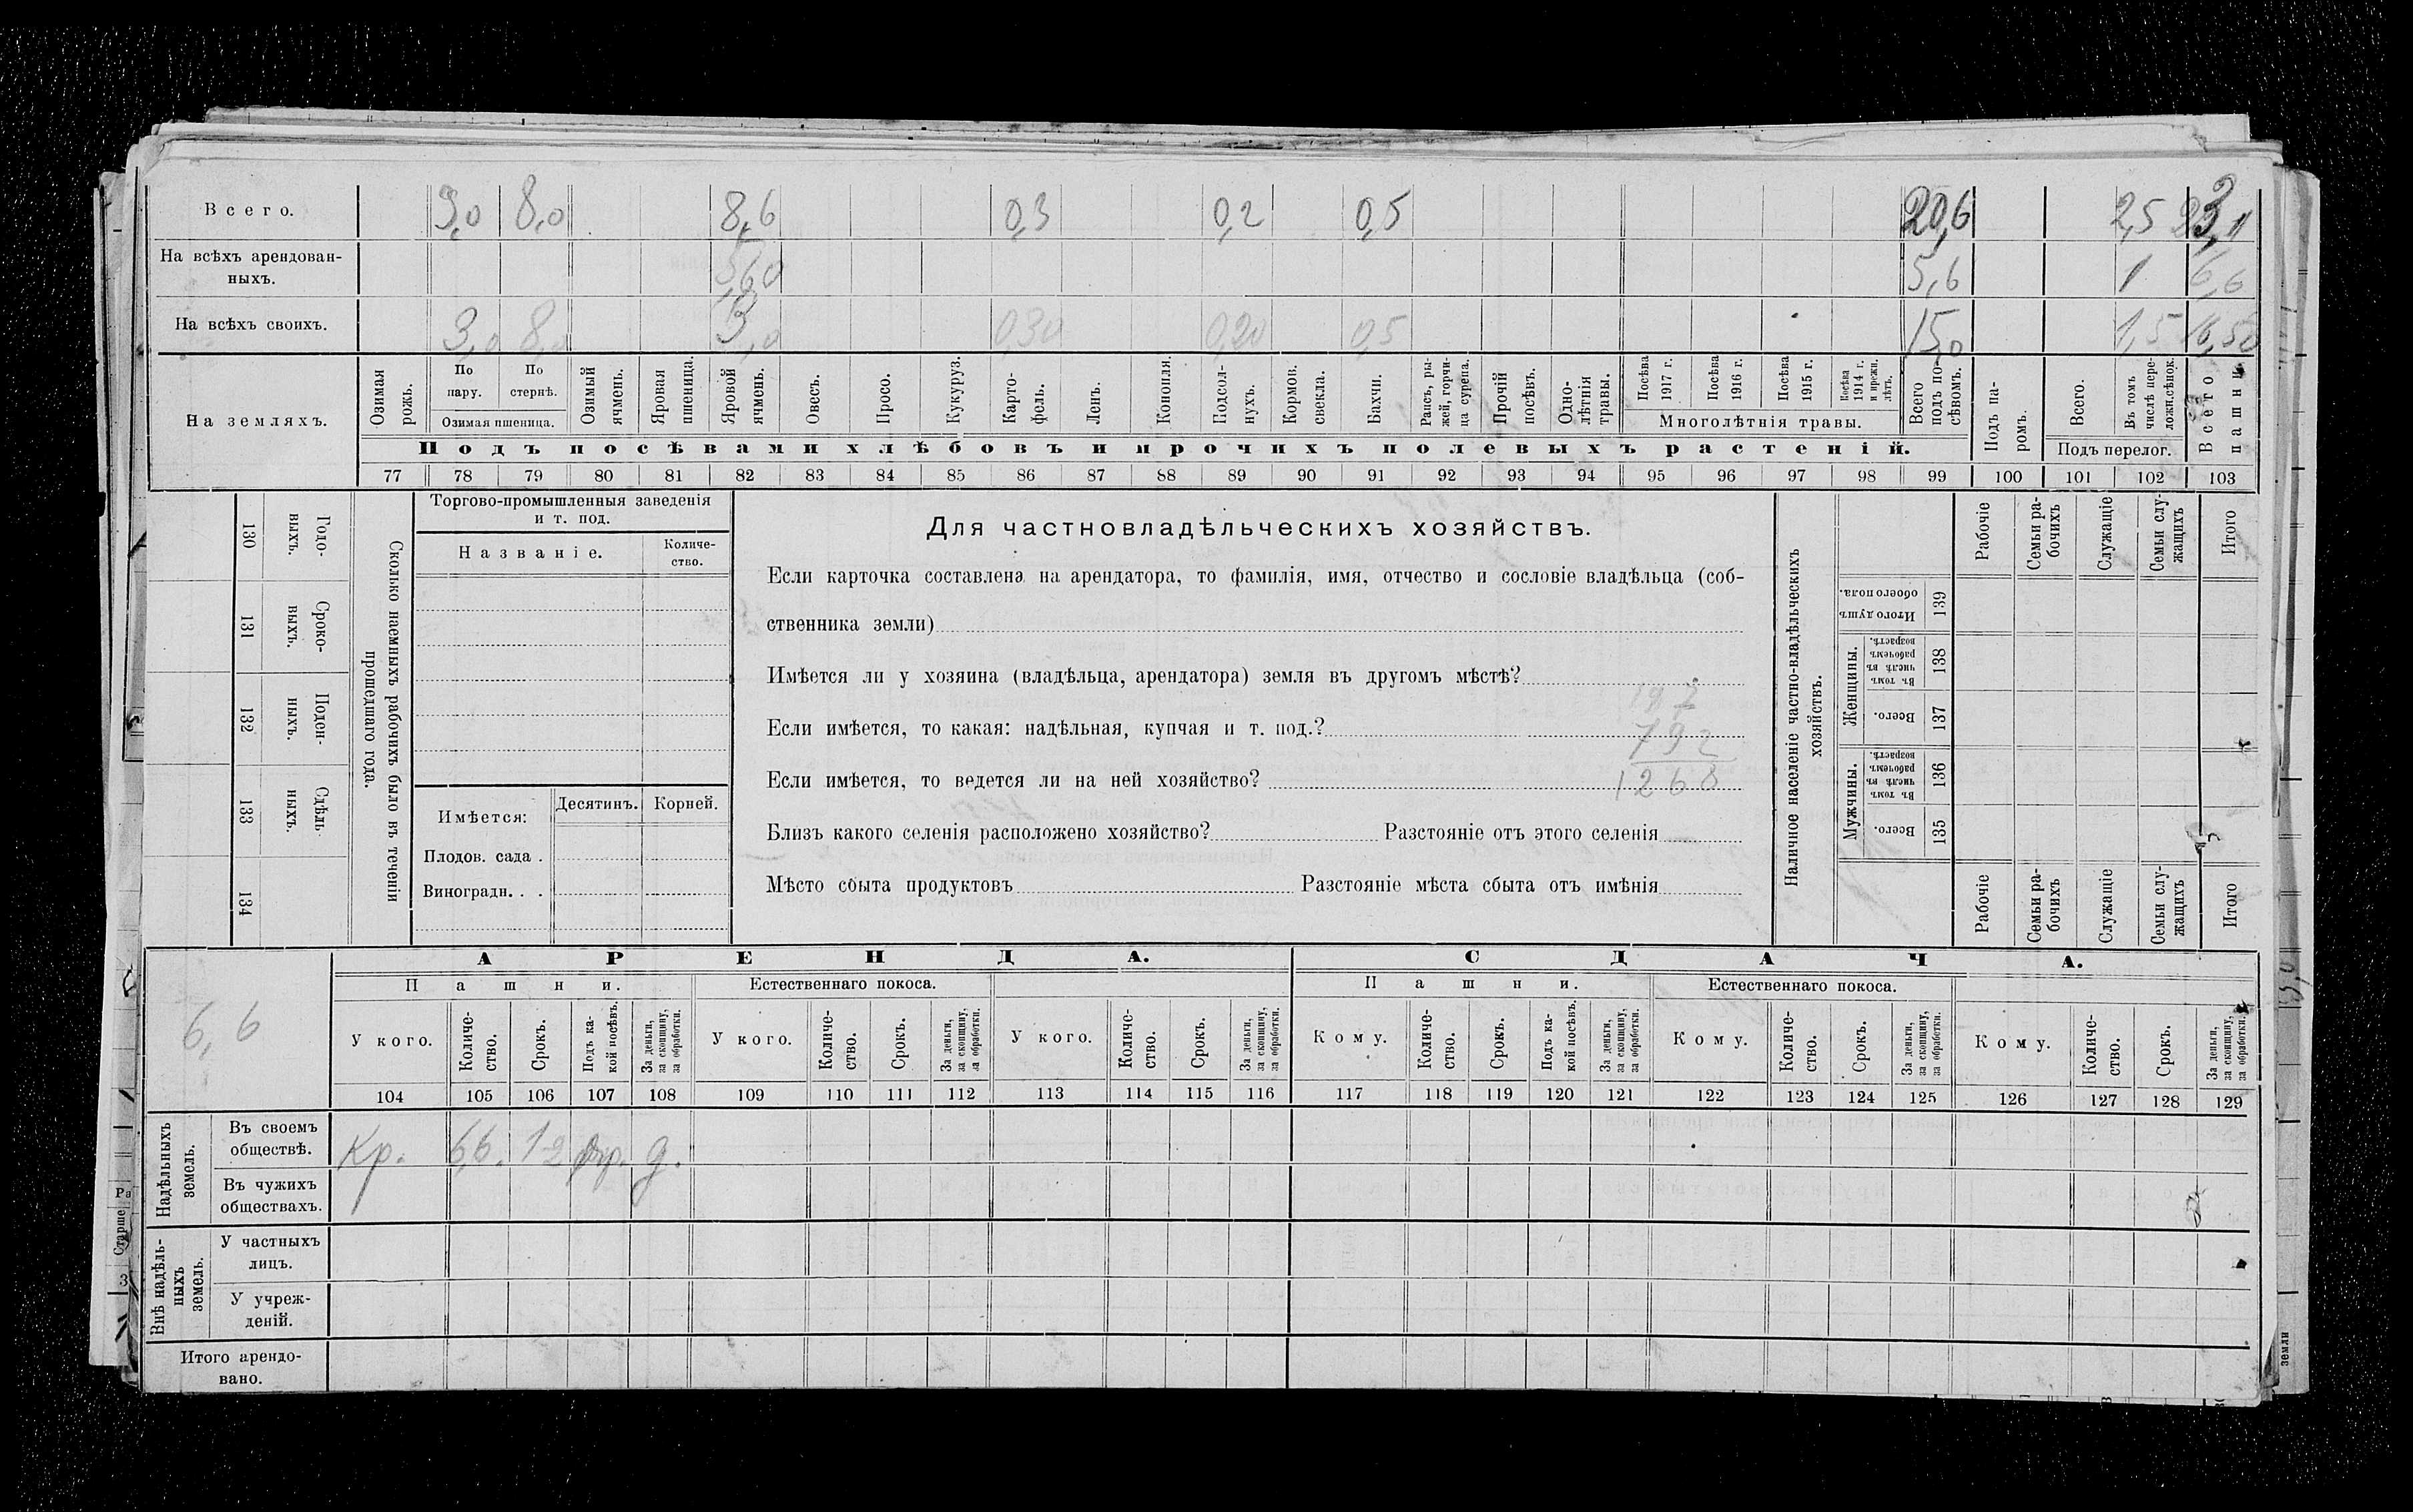 Всего. 3,0 8,0 8,6 0,3 0,2 0,5 20,6 2,5
На всѣхъ арендован-
ныхъ. 5,60 5,6 1 6,6
На всѣхъ своихъ. 3,0 8,0 3,0 0,30 0,20 0,5 15,0 1,5 16,50
На земляхъ.
Озимая рожь.
По пару.
По стернѣ.
Озимая пшеница.
Озимый ячмень.
Яровая пшеница.
Яровой ячмень.
Овесъ.
Просо.
Кукуруз.
Карто-
фель.
Ленъ.
Конопля.
Подсол-
нухъ.
Кормов. свекла.
Бахчи.
Рапсъ, ры-
жей, горчи-
ца сурепа.
Прочій посѣвъ.
Одно-
лѣтнія травы.
Посѣва 1917 г.
Посѣва 1916 г.
Посѣва 1915 г.
Посѣва 1914 г. и прежн. лѣтъ.
Многолѣтнія травы.
Всего подъ по-
сѣвомъ.
Подъ па-
ромъ.
Всего.
Въ томъ числѣ пере-
ложн. сѣнок.
Подъ перелог.
Всего пашни.
Подъ посѣвами хлѣбовъ и прочихъ полевыхъ растеній.
77 78 79 80 81 82 83 84 85 86 87 88 89 90 91 92 93 94 95 96 97 98 99 100 101 102 103
130 Годо-
выхъ.
131 Сроко-
выхъ.
132 Поден-
ныхъ.
133 Сдѣль-
ныхъ.
134
Сколько наемныхъ рабочихъ было въ теченіи
прошедшаго года.
Торгово-промышленныя заведенія
и т. под.
Названіе.
Количе-
ство.
Имѣется: Десятинъ. Корней.
Плодов. сада .
Виноградн. . .
Для частновладѣльческихъ хозяйствъ.
Если карточка составлена на арендатора, то фамилія, имя, отчество и сословіе владѣльца (соб-
ственника земли)
Имѣется ли у хозяина (владѣльца, арендатора) земля въ другомъ мѣстѣ?
Если имѣется, то какая: надѣльная, купчая и т. под.? 792
Если имѣется, то ведется ли на ней хозяйство? 1268
Близъ какого селенія расположено хозяйство? Разстояніе отъ этого селенія
Мѣсто сбыта продуктовъ Разстояніе мѣста сбыта отъ имѣнія
Наличное населеніе частно-владѣльческихъ
хозяйствъ.
Рабочіе
Семьи ра-
бочихъ
Служащіе
Семьи слу-
жащихъ
Итого
Итого душъ обоего пола. 139
Женщины.
Въ томъ числѣ въ рабочемъ возрастѣ. 138
Всего. 137
Мужчины.
Въ томъ числѣ въ рабочемъ возрастѣ. 136
Всего. 135
Рабочіе
Семьи ра-
бочихъ
Служащіе
Семьи слу-
жащихъ
Итого
6,6
АРЕНДА. СДАЧА.
Пашни. Естественнаго покоса. Пашни. Естественнаго покоса.
У кого.
Количе-
ство.
Срокъ.
Подъ ка-
кой посѣвъ.
За деньги, за скопщину, за обработки.
У кого.
Количе-
ство.
Срокъ.
За деньги, за скопщину, за обработки.
У кого.
Количе-
ство.
Срокъ.
За деньги, за скопщину, за обработки.
Кому.
Количе-
ство.
Срокъ.
Подъ ка-
кой посѣвъ.
За деньги, за скопщину, за обработки.
Кому.
Количе-
ство.
Срокъ.
За деньги, за скопщину, за обработки.
Кому.
Количе-
ство.
Срокъ.
За деньги, за скопщину, за обработки.
104 105 106 107 108 109 110 111 112 113 114 115 116 117 118 119 120 121 122 123 124 125 126 127 128 129
Надѣльныхъ
земель.
Въ своемъ
обществѣ. Кр. 6,6. 12 д.
Въ чужихъ
обществахъ.
Внѣ надѣль-
ныхъ
земель.
У частныхъ
лицъ.
У учреж-
деній.
Итого арендо-
вано.
Ра
Старше
З
земли